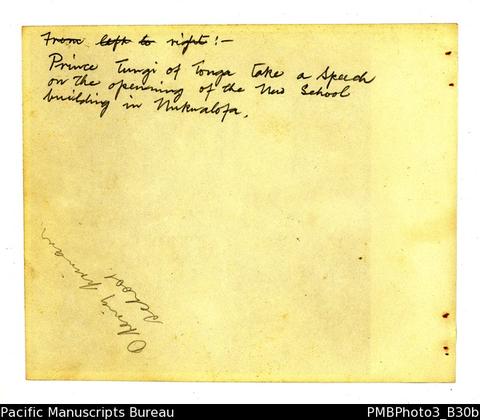 From left to right :—
Prince Tungi of Tonga take a Speech
on the openning of the New School
building in Nukualofa.
school
Pacific Manuscripts Bureau
PMBPhoto3_B30b